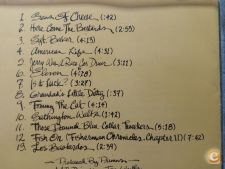 1. Seas Of Cheese (:42)
2. Here Come The Bastards (2:55)
3. Sgt. Baker (4:15)
4. American Life (4:31)
5. Jerry Was A Race Car Driver (3:11)
6. Eleven (4:18)
7. Is It Luck? (3:27)
8. Grandad's Little Ditty (:37)
9. Tommy The Cat (4:14)
10. Sathington Waltz (1:42)
11. Those Damned Blue Collar Tweekers (5:18)
12. Fish On (Fisherman Chronicles, Chapter II) (7:42)
13. Los Bastardos (2:39)
Produced By Primus